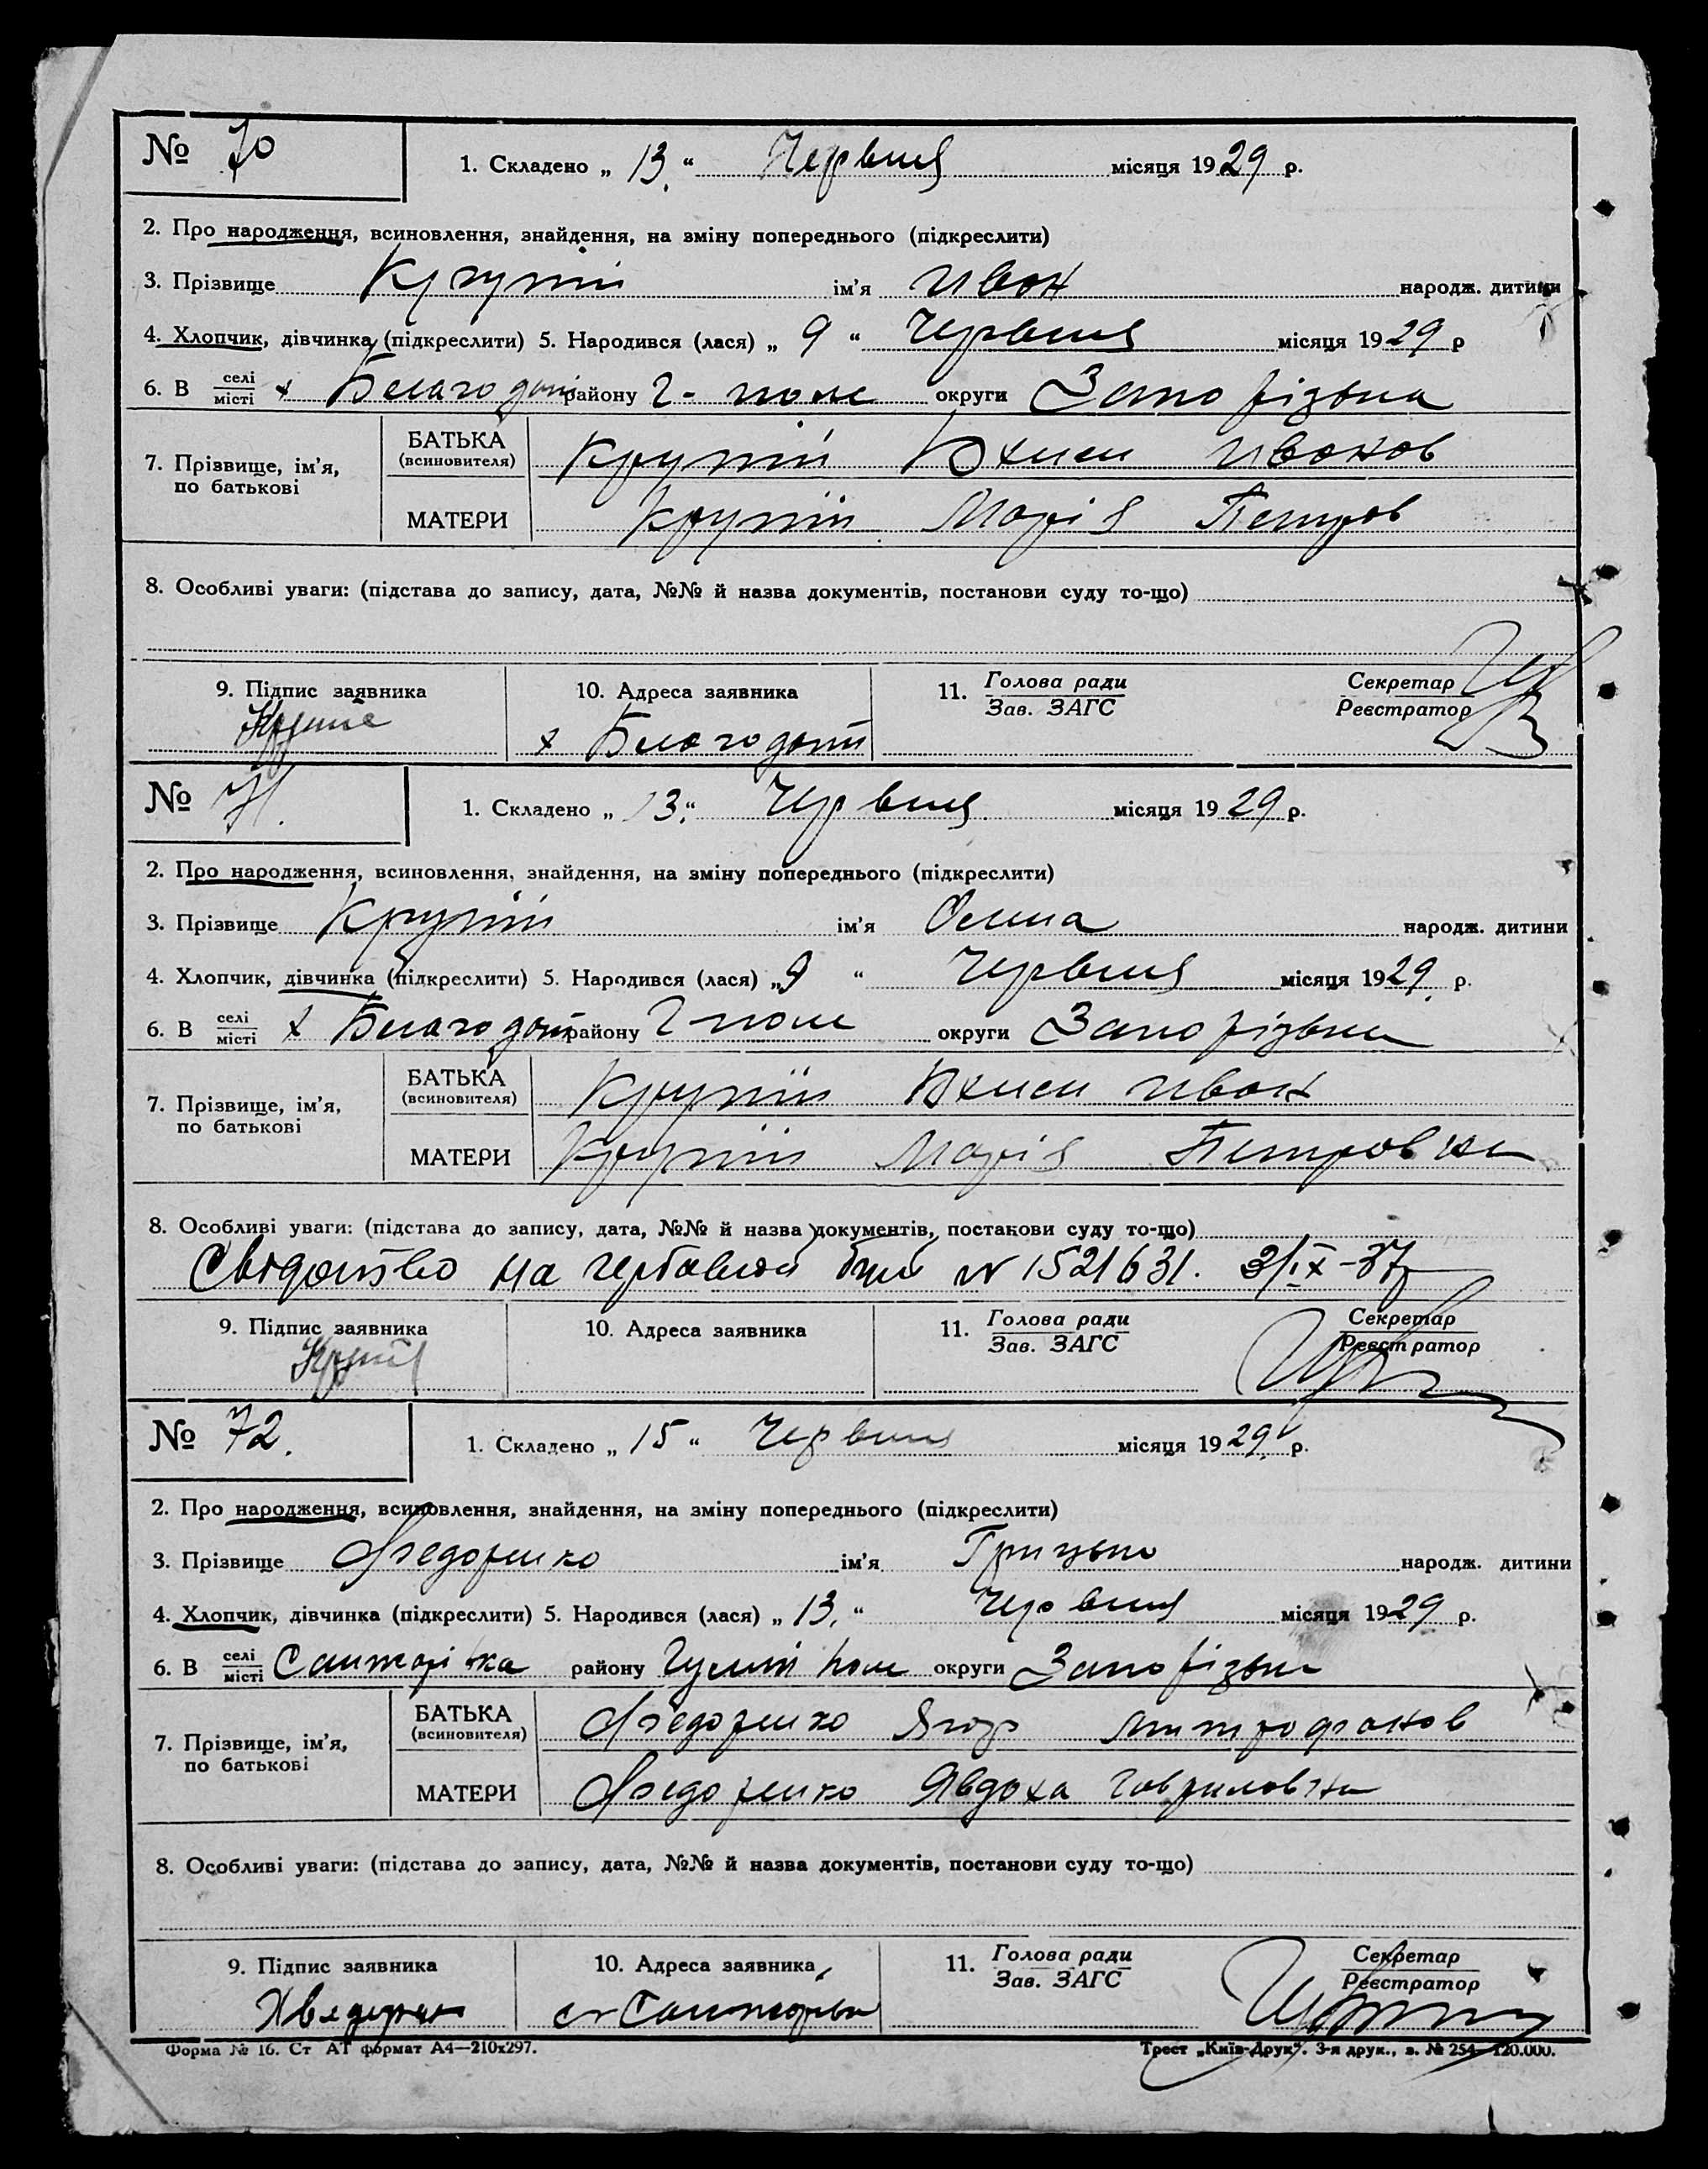 № 70
1. Складено „ 13. “ Червня місяця 1929 р.
2. Про народження, всиновлення, знайдення, на зміну попереднього (підкреслити)
3. Прізвище Крупій ім'я Ивон народж. дитини
4. Хлопчик, дівчинка (підкреслити) 5. Народився (лася) „ 9 “ Червня місяця 1929 р
6. В селі місті х Благодат району Г-поле округи Запорізька
7. Прізвище, ім'я, по батькові
БАТЬКА (всиновителя) Крупій Ивонов
МАТЕРИ Крупій Марія Петров
8. Особливі уваги: (підстава до запису, дата, №№ й назва документів, постанови суду то-що)
9. Підпис заявника
10. Адреса заявника
11. Голова ради Зав. ЗАГС
Секретар Реєстратор
х Благодати
№ 71.
1. Складено „ 13. “ Червня місяця 1929 р.
2. Про народження, всиновлення, знайдення, на зміну попереднього (підкреслити)
3. Прізвище Крупій ім'я народж. дитини
4. Хлопчик, дівчинка (підкреслити) 5. Народився (лася) „ 9 “ Червня місяця 1929. р.
6. В селі місті х Благодат району Г-поле округи Запорізька
7. Прізвище, ім'я, по батькові
БАТЬКА (всиновителя) Крупій Ивон
МАТЕРИ Крупій Марія Петров'на
8. Особливі уваги: (підстава до запису, дата, №№ й назва документів, постанови суду то-що)
Свідоцтво на гербовой N 1521631. 3/IX-37
9. Підпис заявника
10. Адреса заявника
11. Голова ради Зав. ЗАГС
Секретар Реєстратор
№ 72.
1. Складено „ 15 “ Червня місяця 1929 р.
2. Про народження, всиновлення, знайдення, на зміну попереднього (підкреслити)
3. Прізвище Федоренко ім'я Грицько народж. дитини
4. Хлопчик, дівчинка (підкреслити) 5. Народився (лася) „ 13. “ Червня місяця 1929 р.
6. В селі місті Санжарівка району Гуляй Поле округи Запорізьк
7. Прізвище, ім'я, по батькові
БАТЬКА (всиновителя) Федоренко Ягор Митрофанов
МАТЕРИ Федоренко Явдоха Гаврилов'на
8. Особливі уваги: (підстава до запису, дата, №№ й назва документів, постанови суду то-що)
9. Підпис заявника
10. Адреса заявника
11. Голова ради Зав. ЗАГС
Секретар Реєстратор
Форма № 16. Ст АТ формат А4—210х297.
Трест „Київ-Друк“. 3-я друк., з. № 254—120.000.